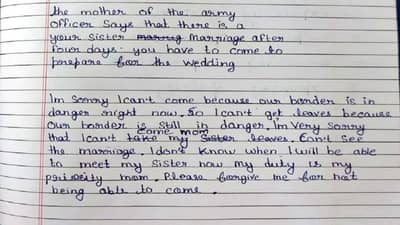 the mother of the army
officer says that there is a
your sister marriage after
four days. you have to come to
prepare for the wedding
Im sorry I can't come because our border is in
danger right now. So I can't get leaves because
our border is still in danger, Im very sorry
come mom
that I can't take my sister leaves. Can't see
the marriage. I don't know when I will be able
to meet my sister now my duty is my
priority mom. Please forgive me for not
being able to come.